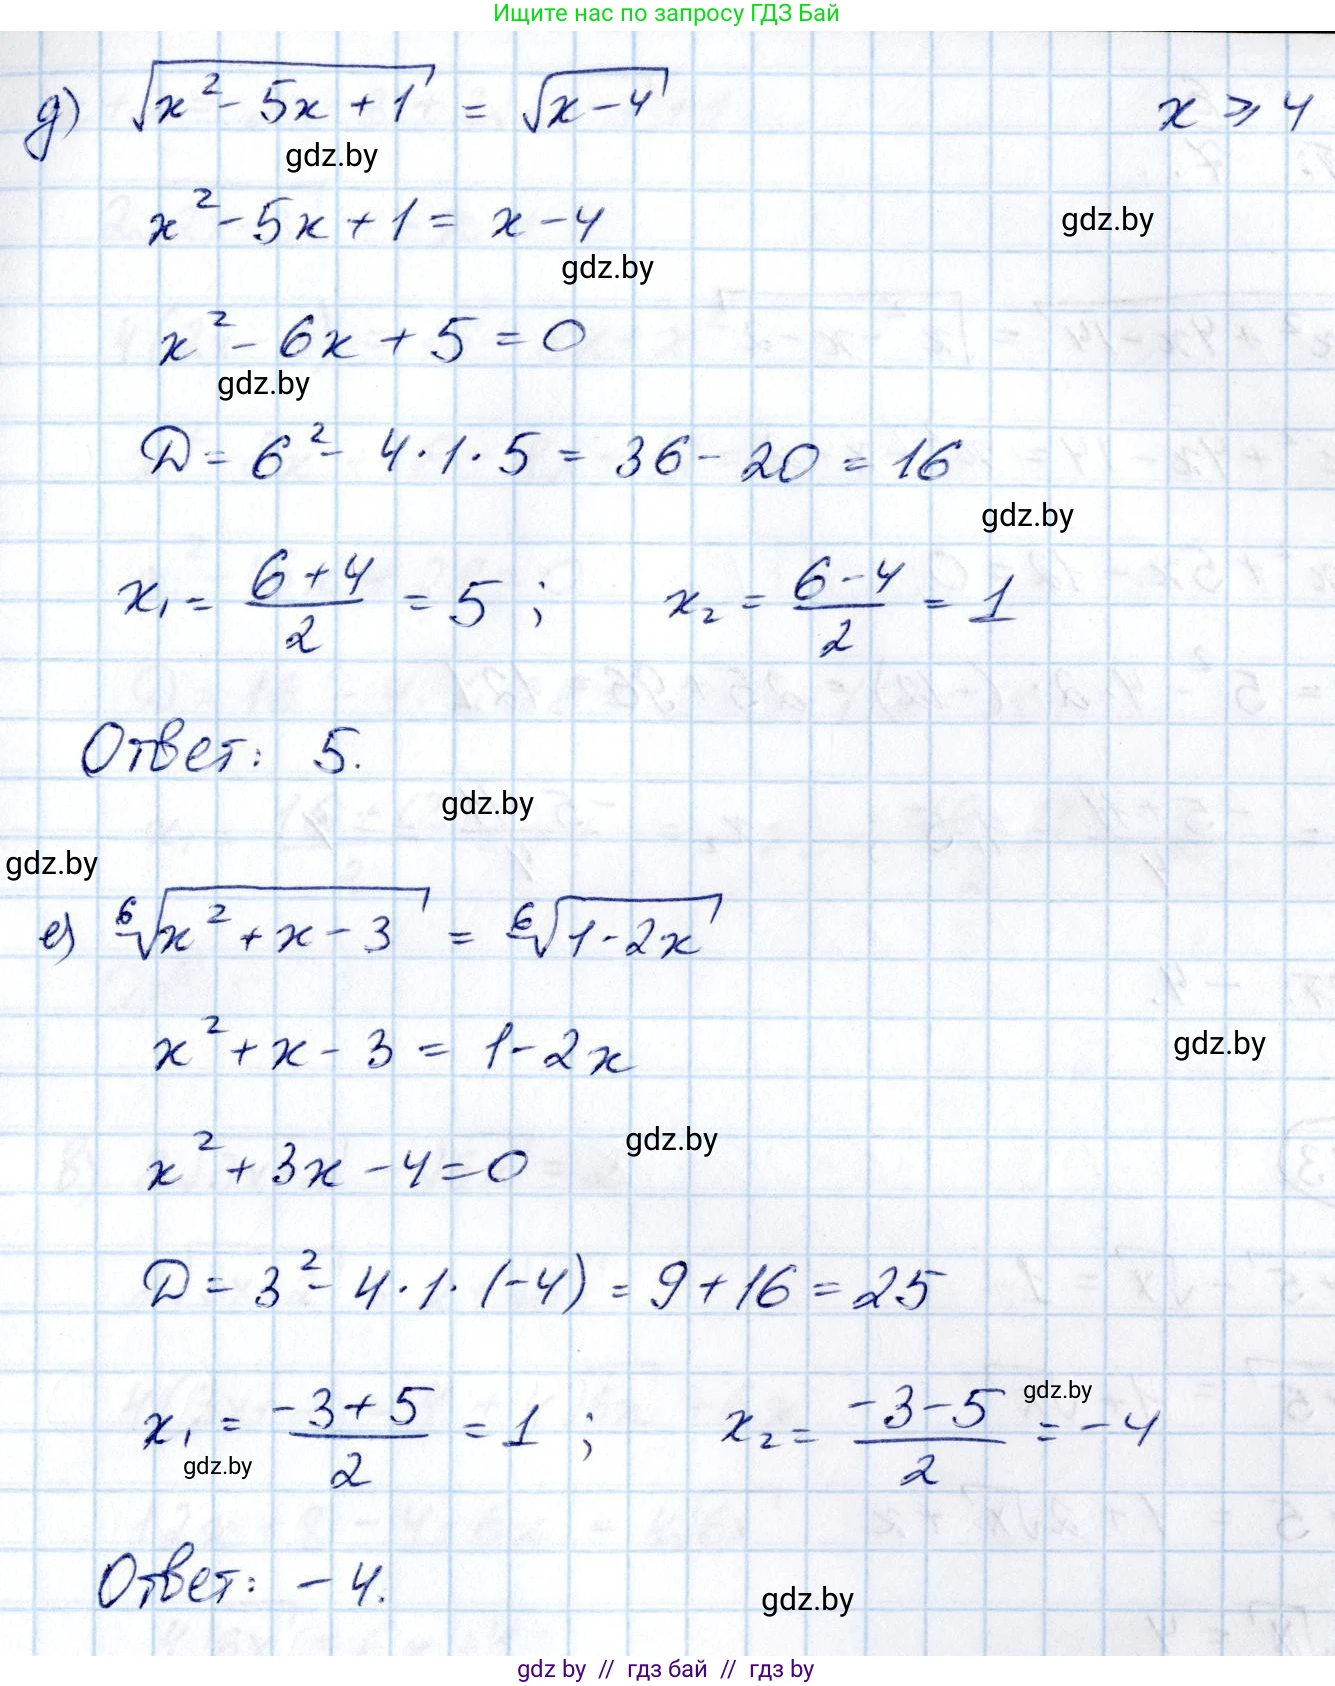 Ищите нас по запросу ГДЗ Бай
д) √(x² - 5x + 1) = √(x - 4) x ⩾ 4
gdz.by
x² - 5x + 1 = x - 4
gdz.by
gdz.by
x² - 6x + 5 = 0
gdz.by
D = 6² - 4 · 1 · 5 = 36 - 20 = 16
gdz.by
x₁ = (6 + 4)/2 = 5 ; x₂ = (6 - 4)/2 = 1
Ответ: 5.
gdz.by
gdz.by
е) ⁶√(x² + x - 3) = ⁶√(1 - 2x)
x² + x - 3 = 1 - 2x
gdz.by
gdz.by
x² + 3x - 4 = 0
D = 3² - 4 · 1 · (-4) = 9 + 16 = 25
x₁ = (-3 + 5)/2 = 1 ; x₂ = (-3 - 5)/2 = -4
gdz.by
gdz.by
Ответ: -4.
gdz.by
gdz by // гдз бай // гдз by